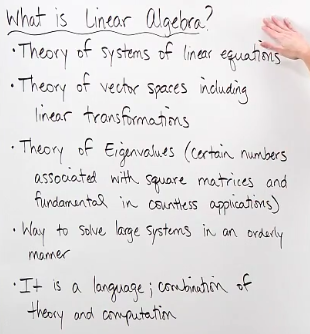 What is Linear Algebra?
• Theory of systems of linear equations
• Theory of vector spaces including
linear transformations
• Theory of Eigenvalues (certain numbers
associated with square matrices and
fundamental in countless applications)
• Way to solve large systems in an orderly
manner
• It is a language; combination of
theory and computation